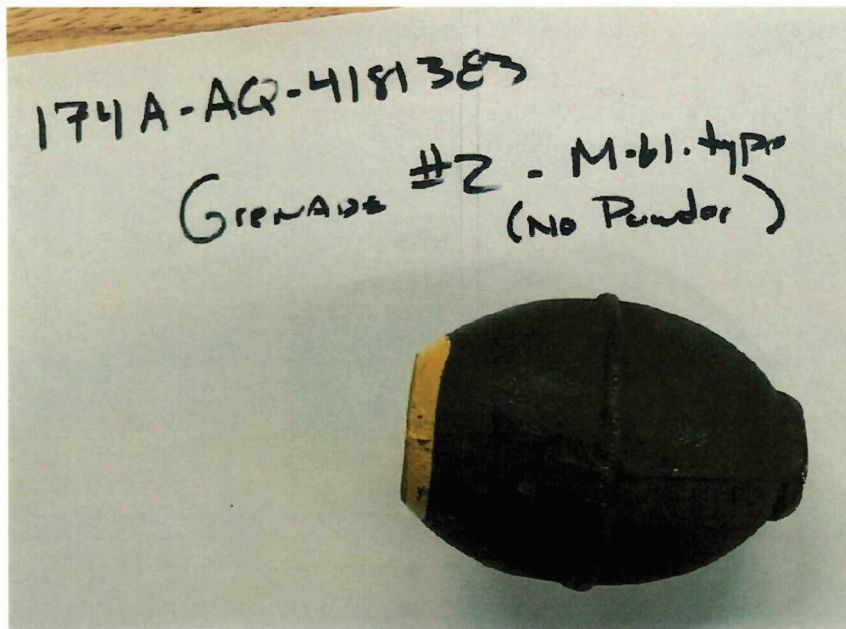 174A-AQ-4181383
GRENADE #2 - M-61-type
(No Powder)